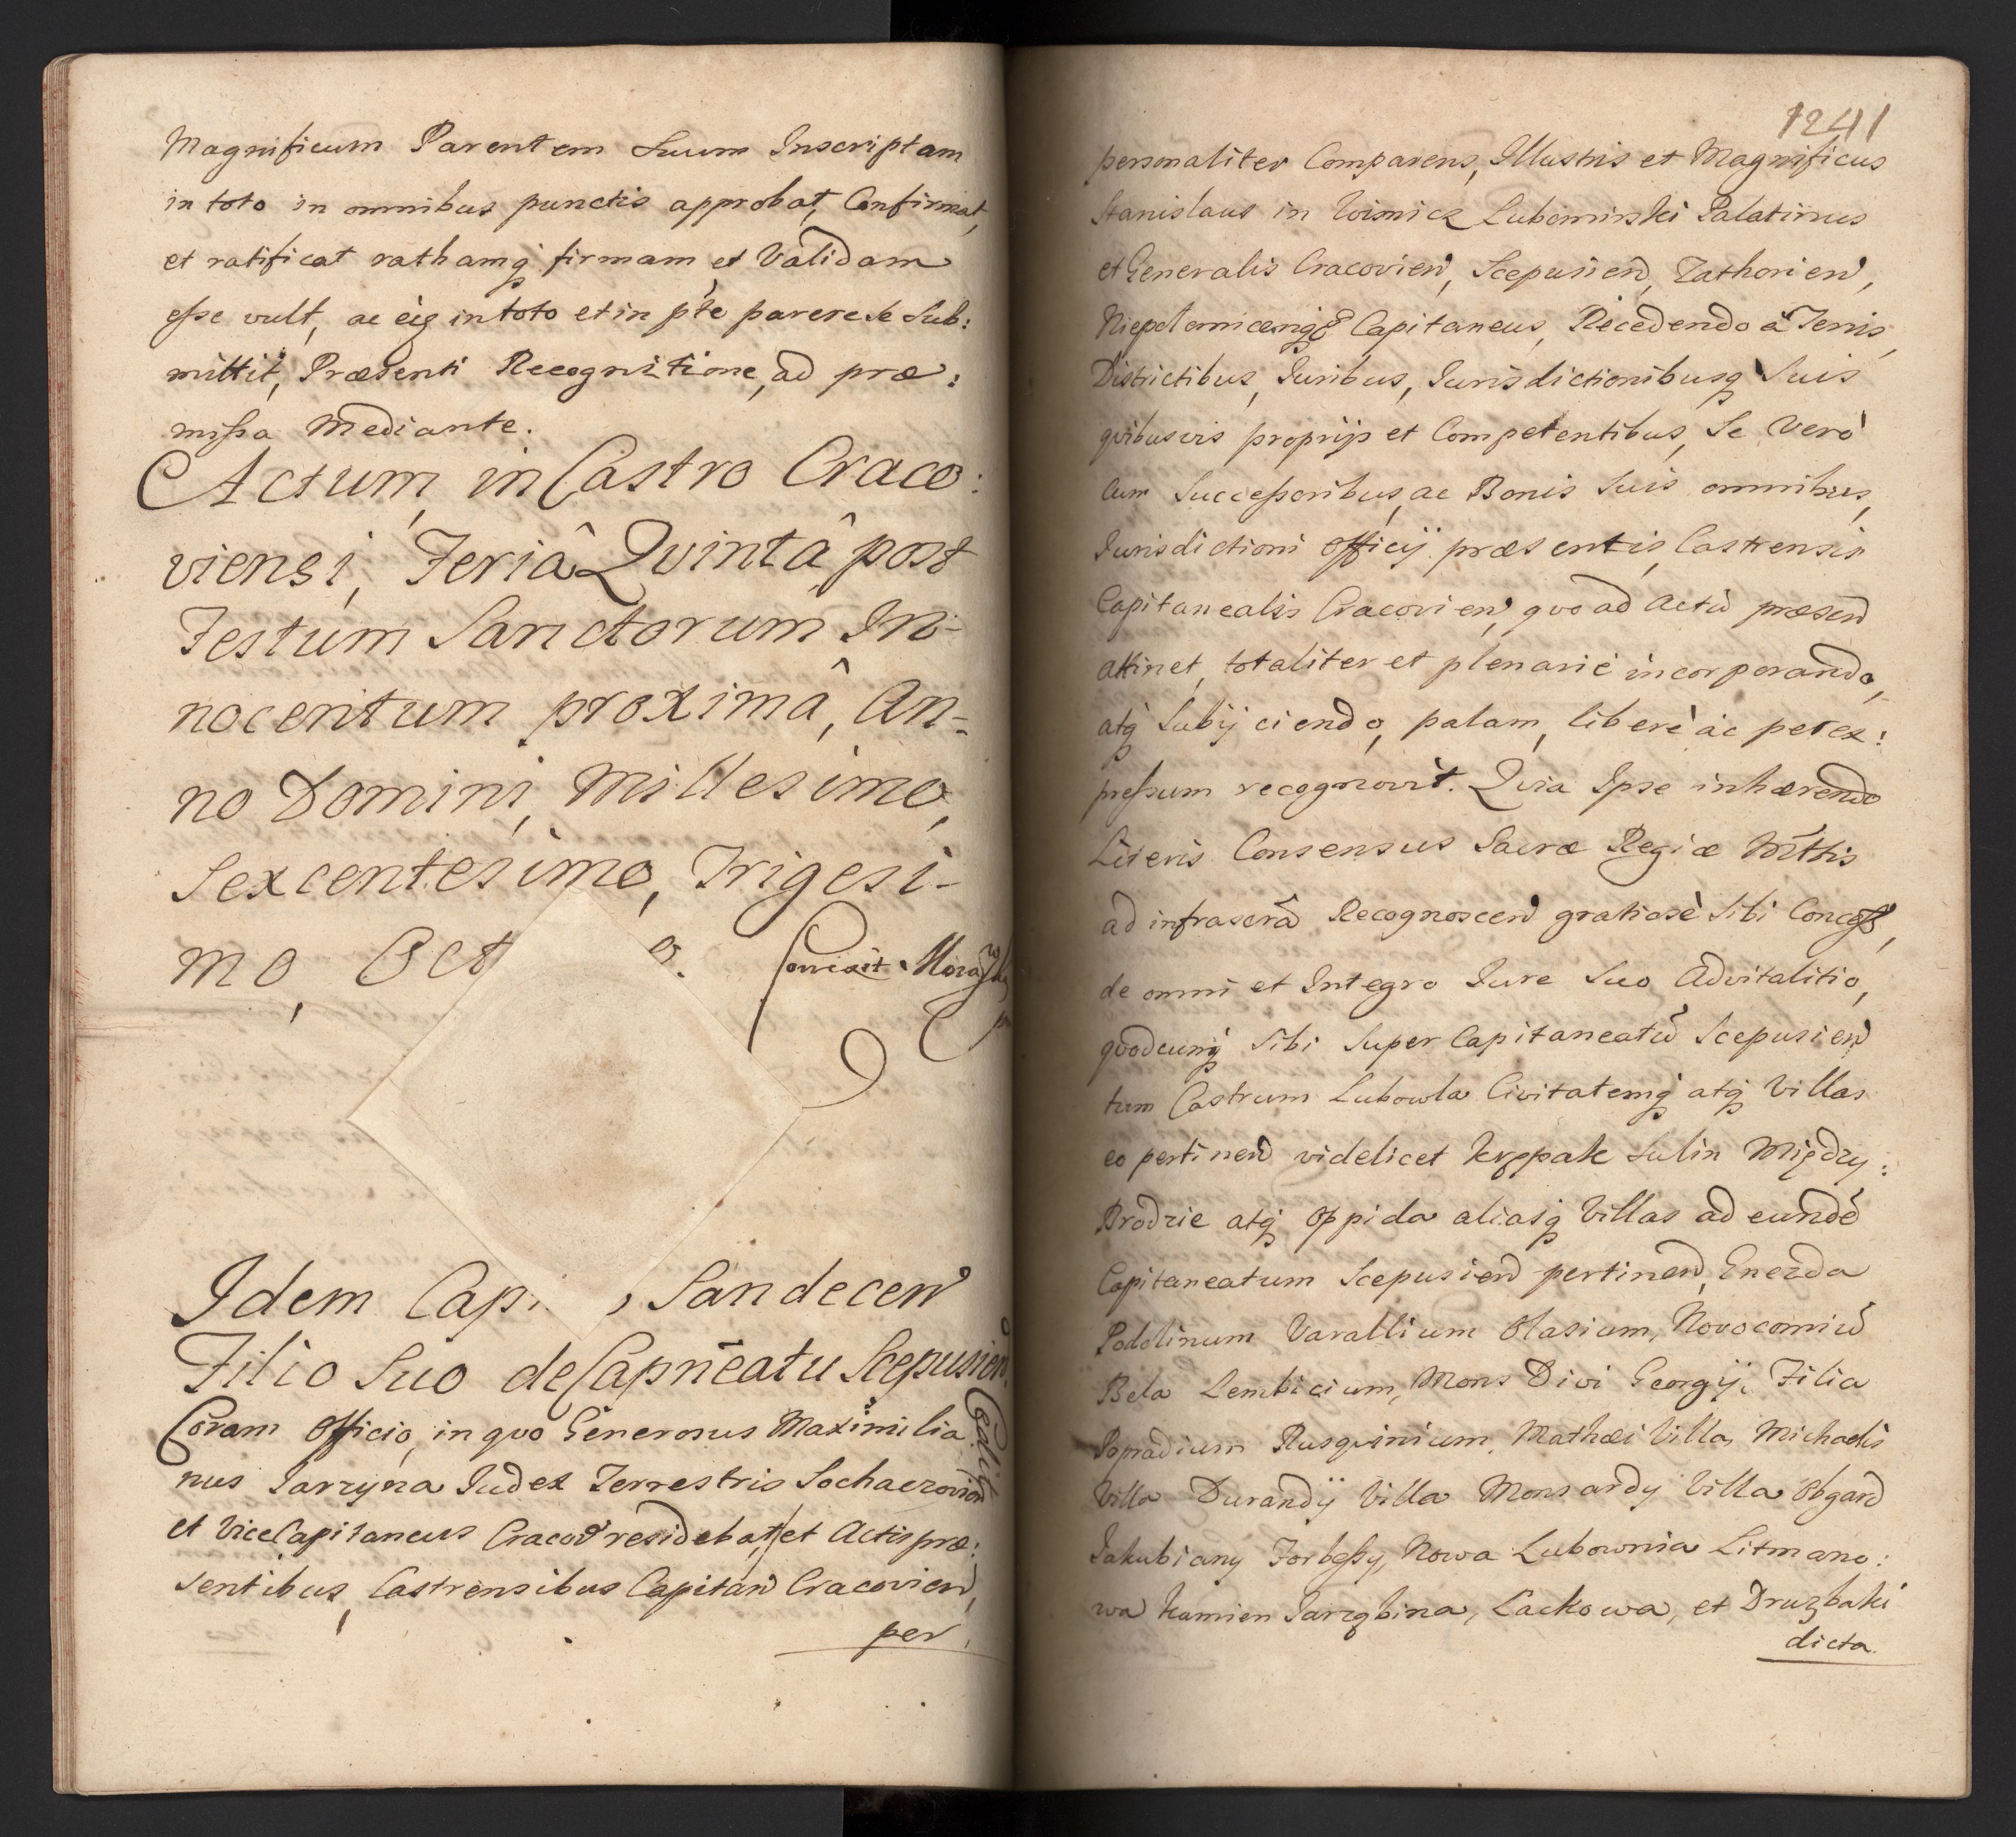 Magnificum Parentem Suum Inscriptam
in toto in omnibus punctis approbat, Confirmat,
et ratificat rathamq firmam et Validam
eſse vult, ac eiq in toto et in pt̄e parere se Sub:
mittit, Præsenti Recognitione, ad præ:
miſsa Mediante.
Actum, in Castro Craco:
viensi, Feriâ Qvintâ post
Festum Sanctorum In-
nocentum proximâ, An-
no Domini, Millesimo,
Sexcentesimo, Trigesi-
mo, Oct o. Correxit
Idem Cap. Sandecen
Filio Suo de Capn̄eatu Scepusien
Cedit
Coram Officio, in qvo Generosus Maximilia
nus Jarzyna Judex Terrestris Sochaczovien
et ViceCapitaneus Cracov residebat, et Actis præ:
sentibus, Castrensibus Capitan Cracovien,
per
1241
personaliter Comparens, Illustris et Magnificus
Stanislaus in Wisnicz Lubomirski Palatinus
et Generalis Cracovien, Scepusien, Zathorien,
Niepolomicenq Capitaneus, Recedendo a Terris,
Districtibus, Iuribus, Iurisdictionibusq Suis
qvibusvis proprijs et Competentibus, Se Verò
Cum Succeſsoribus, ac Bonis Suis omnibus,
Iurisdictioni Officij præsentis, Castrensis
Capitanealis Cracovien, qvo ad Actū præsen
attinet, totaliter et plenariè incorporando,
atq Subijciendo, palam, liberè ac per ex:
preſsum recognovit. Qvia Ipse inhærendo
Literis Consensus Sacræ Regiæ Mt̄tis
ad infrascrā Recognoscen gratiosè Sibi Conceſs,
de omni et Integro Jure Suo Advitalitio,
qvodcunq Sibi Super Capitaneatū Scepusien
tum Castrum Lubowla Civitatemq atq Villas
eo pertinen videlicet Krppak Sulin Między:
Brodzie atq Oppida aliasq Villas ad eundē
Capitaneatum Scepusien pertinen, Gnezda
Podolinum Varallium Olasium, Novocomiū
Bela Lembicium, Mons Divi Georgij, Filia
Popradium Rusqvinium, Mathæi Villa, Michaelis
Villa Durandij Villa Monsardy Villa Obgard
Jakubiany Forbeſsy, Nowa Lubownia Litmano:
wa Kamien Jarzębina, Lackowa, et Druzbaki
dicta